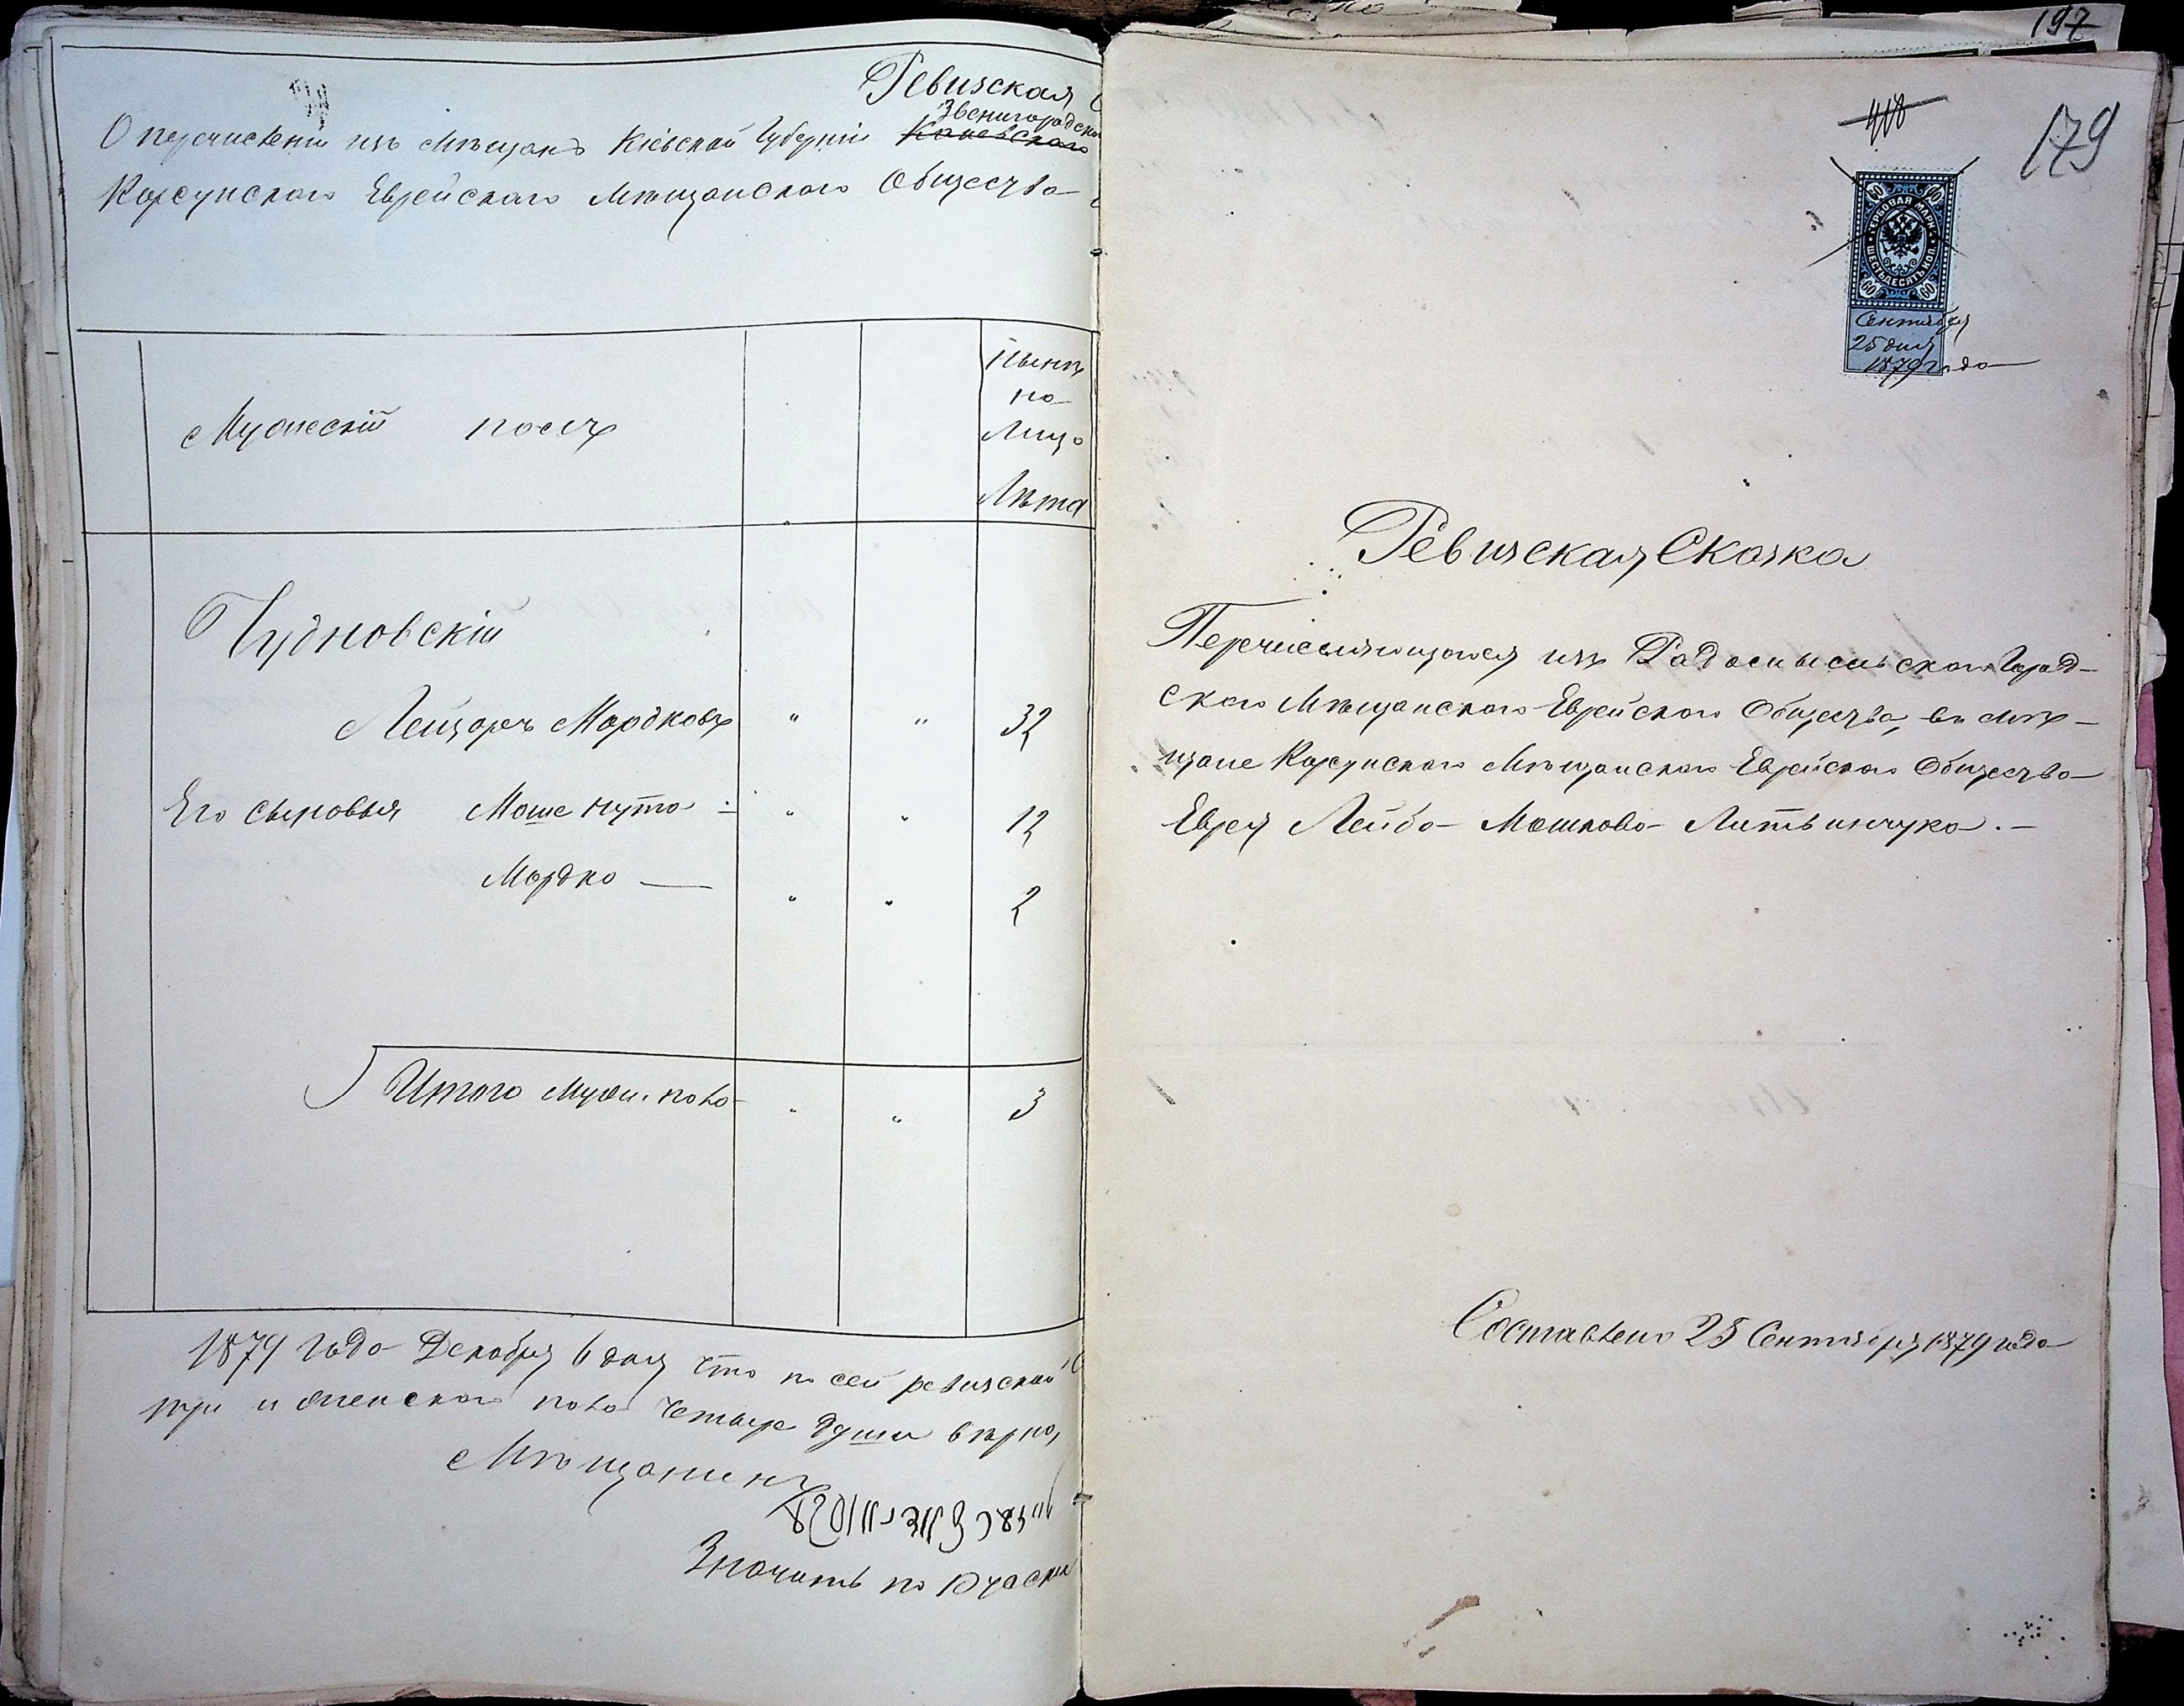 Ревизская
О перечислении изъ Мѣщанъ Кіевской Губерніи Каневского Звенигородско
Корсунского Еврейского Мѣщанского Общества
Мужескій полъ
Нынѣ
на
Лицо
Лѣта
Чудновскій
Лейзоръ Мордковъ " " 32
Его сыновья Моше Нута " " 12
Мордко " " 2
Итого Муж. пола " " 3
1879 года Декабря 6 дня Что по сей ревизской
три и женского пола Четыре души вѣрно,
Мѣщанинъ
Значитъ по
197
179
ГЕРБОВАЯ МАРКА
ШЕСТЬДЕСЯТЪ КОП.
60 60
Сентября
25 дня
1879 года
Ревизская Сказка
Перечисляющагося изъ Радомысльского Город-
ского Мѣщанского Еврейского Общества, въ Мѣ-
щане Корсунского Мѣщанского Еврейского Общества
Еврея Лейба Мошкова Литвинчука.-
Составлено 25 Сентября 1879 года